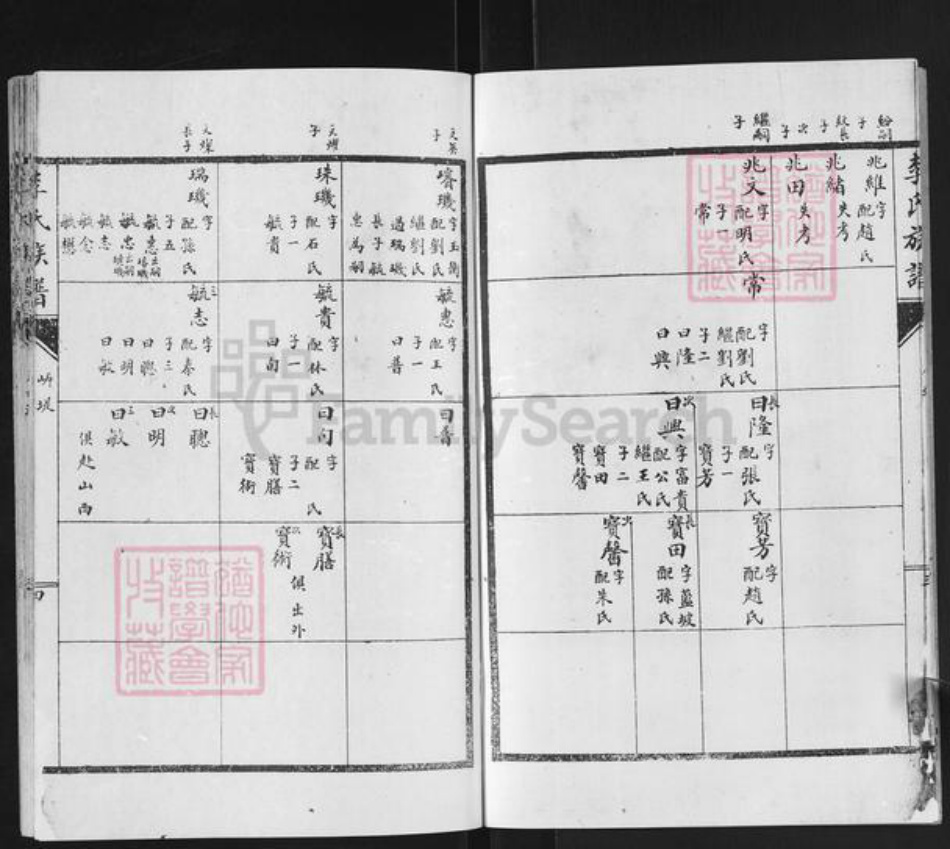 李氏族譜
紛嗣
子
紋長
子
次
子
繼嗣
子
兆維 字
配趙氏
兆緒
失考
兆田
失考
兆文 字
配明氏
子一
常
常
字
配劉氏
繼劉氏
子二
曰隆
曰興
長
曰隆
字
配張氏
子一
寶芳
次
曰興
字富貴
配公氏
繼王氏
子二
寶田
寶馨
寶芳
字
配趙氏
長
寶田
字藍坡
配孫氏
次
寶馨
字
配朱氏
文英
子
璿璣
字玉衡
配劉氏
繼劉氏
過瑞璣
長子毓
惠為嗣
毓惠
字
配王氏
子一
曰普
曰普
文燦
子
珠璣
字
配石氏
子一
毓貴
毓貴
字
配林氏
子一
曰向
曰向
字
配 氏
子二
寶膳
寶術
長
寶膳
次
寶術
俱出外
文燦
長子
瑞璣
字
配孫氏
子五
毓惠 出嗣璿璣
毓忠 出嗣
毓志
毓念
毓懋
三
毓志
字
配秦氏
子三
曰聰
曰明
曰敏
長
曰聰
次
曰明
三
曰敏
俱赴山西
李氏族譜
四
FamilySearch